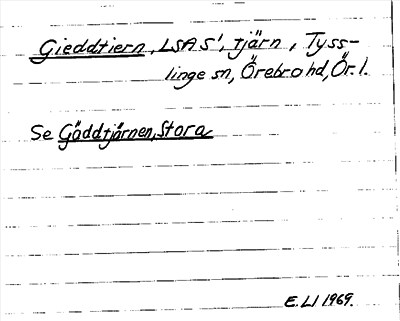 Gieddtiern, LSA S', tjärn, Tyss-
linge sn, Örebro hd, Ör. l.
Se Gäddtjärnen, Stora
E. LI 1969.